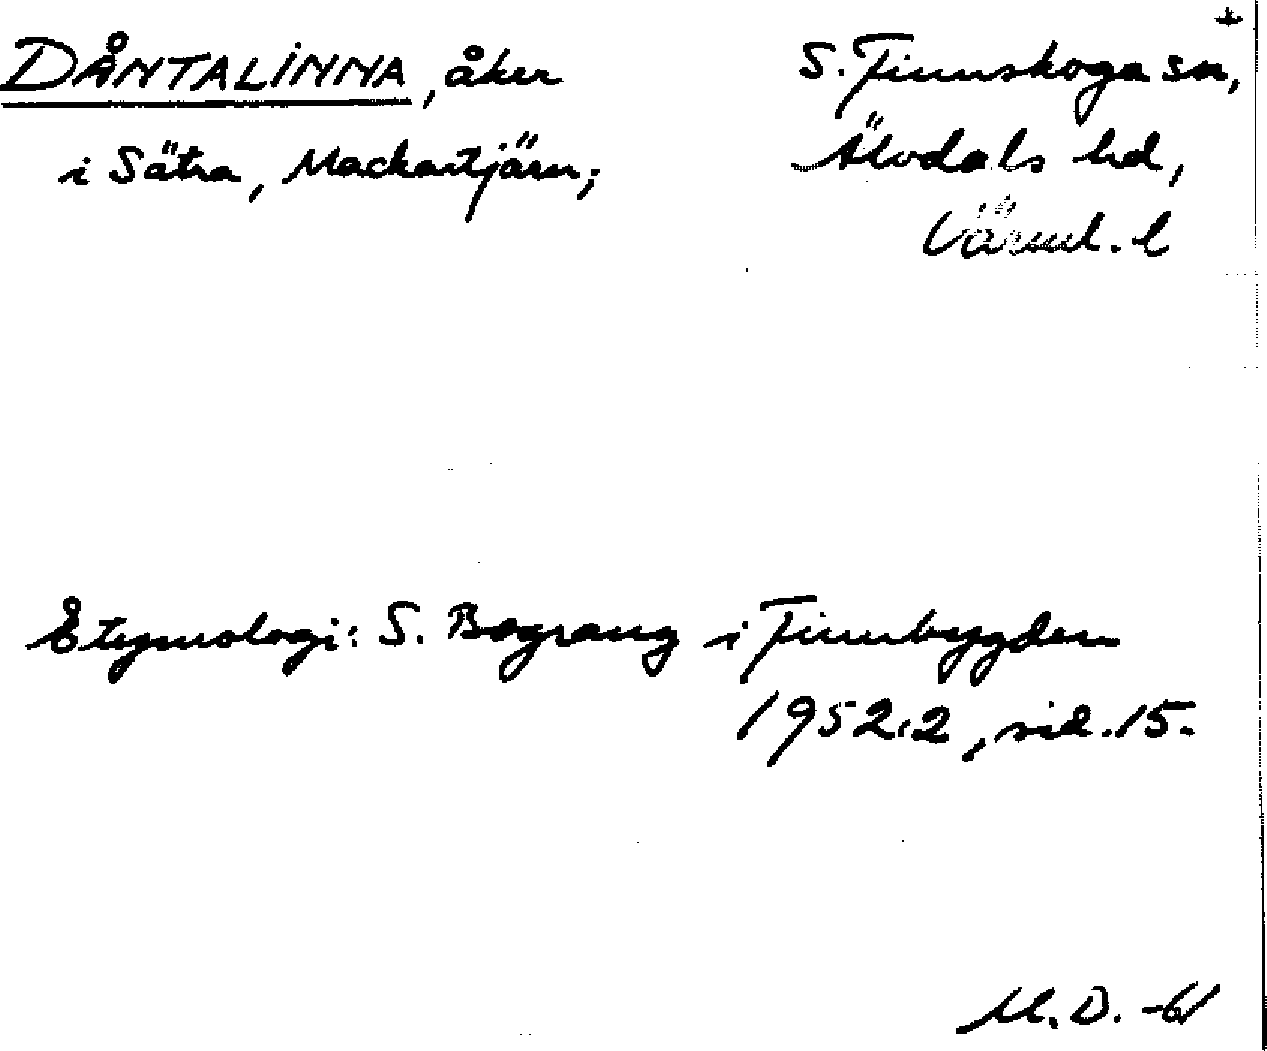 DÅNTALINNA, åker
i Sätra, Mackartjärn;
S. Finnskoga sn,
Älvdals hd,
Värml. l
Etymologi: S. Bograng i Finnbygden
1952:2, sid. 15.
M.D. -61